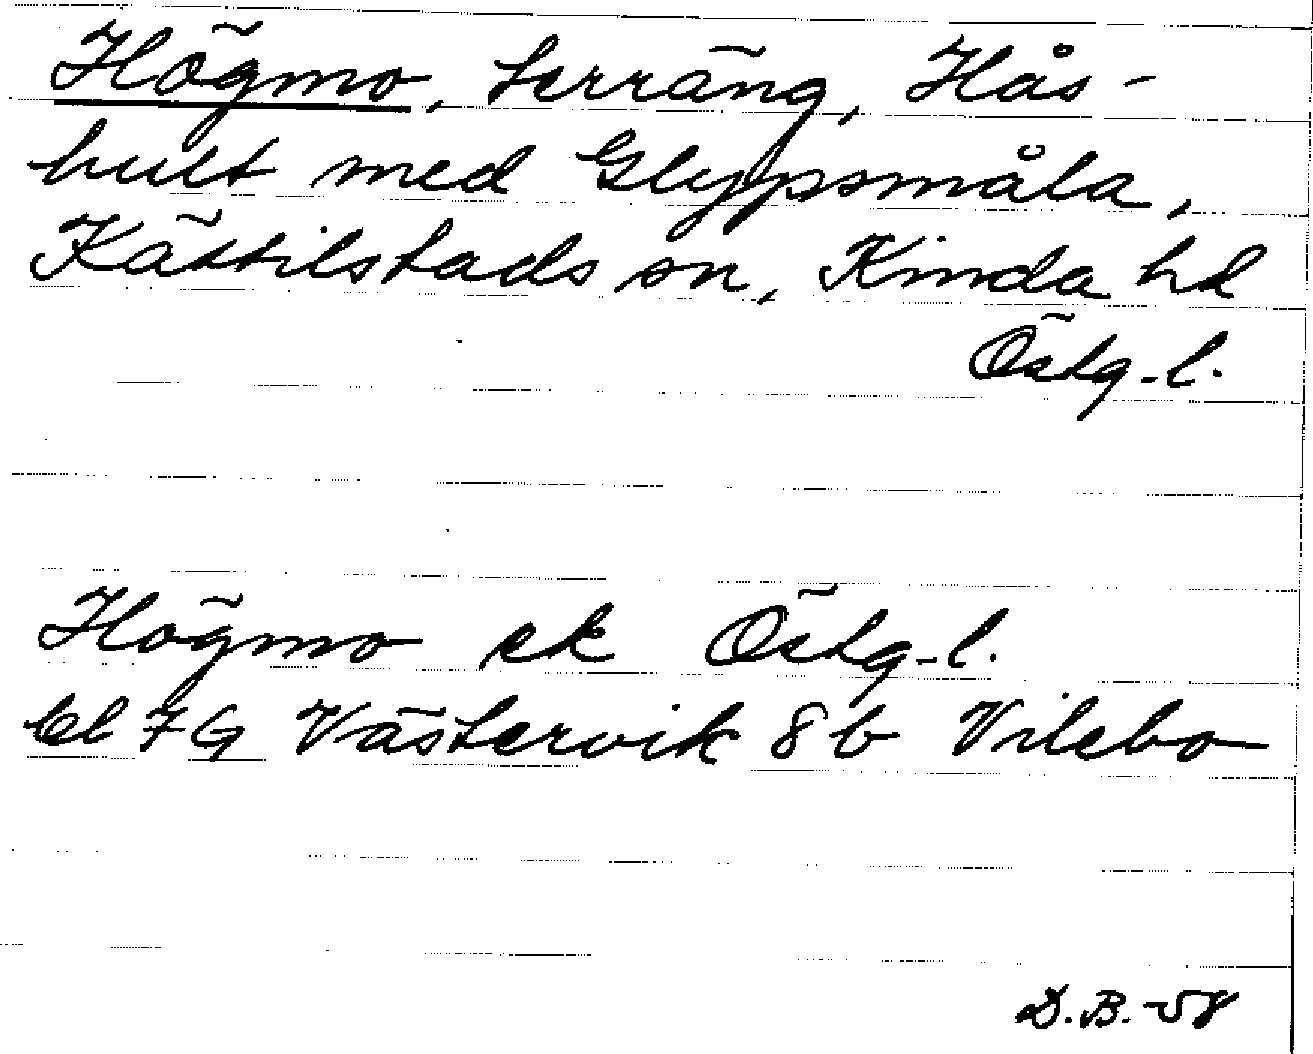 Högmo, terräng, Hås-
hult med Glypsmåla,
Kättilstads sn, Kinda hd
Östg. l.
Högmo ek Östg. l.
bl 7G Västervik 8b Vilebo
D.B. -58